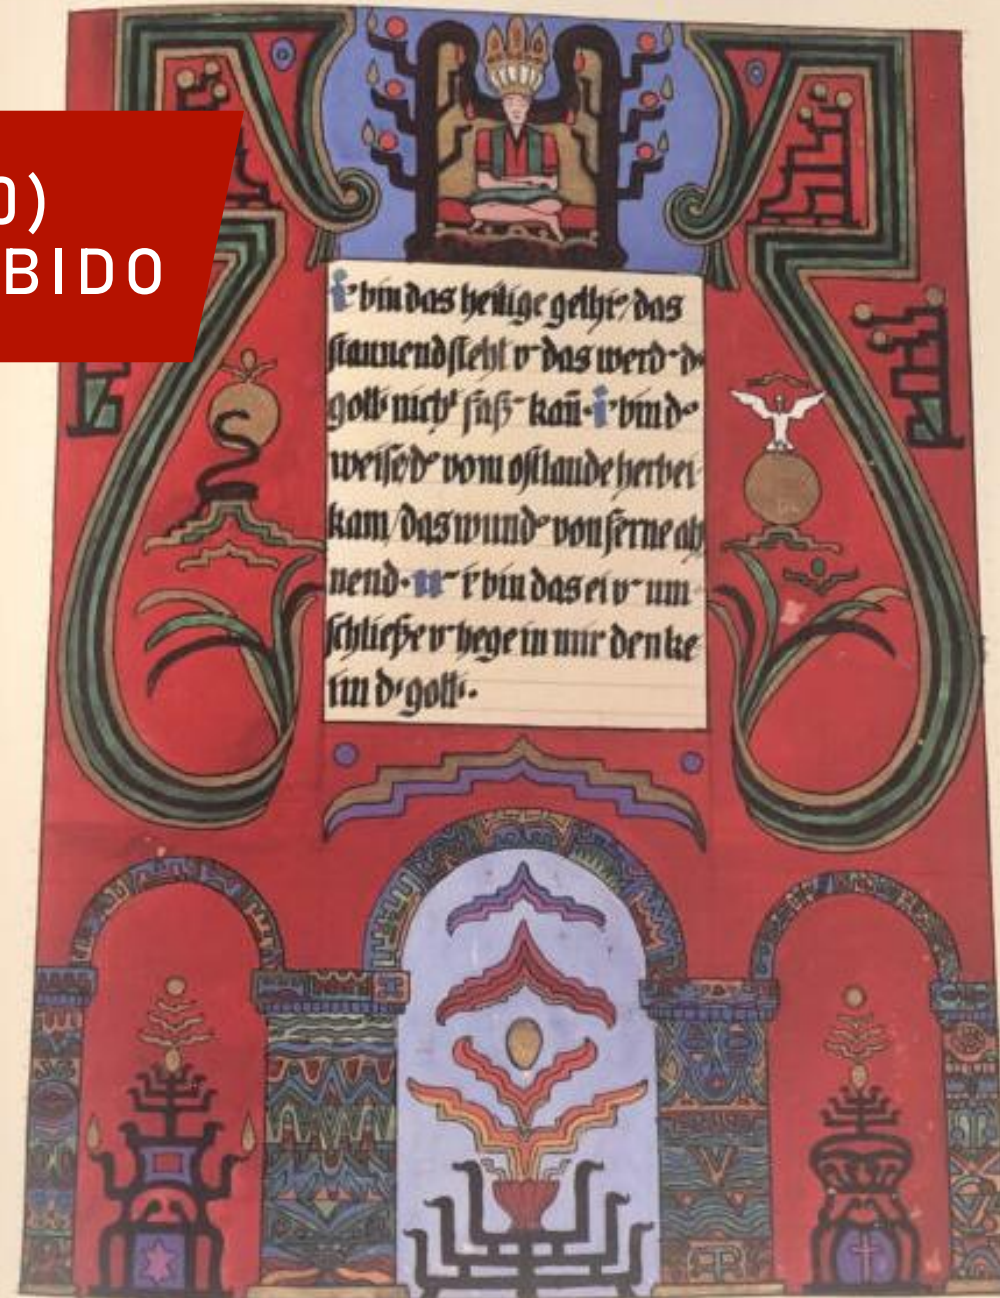 O)
BIDO
i' bin das heilige gethi'/ das
staunend steht v¯ das werd¯ d'
gott' nicht faß¯ kañ· i' bin d'
weise/d' vom ostlande herbei
kam/das wund' von ferne ah
nend· u¯ i' bin das ei v¯ um
schließe v¯ hege in mir den ke
im d' gott'·